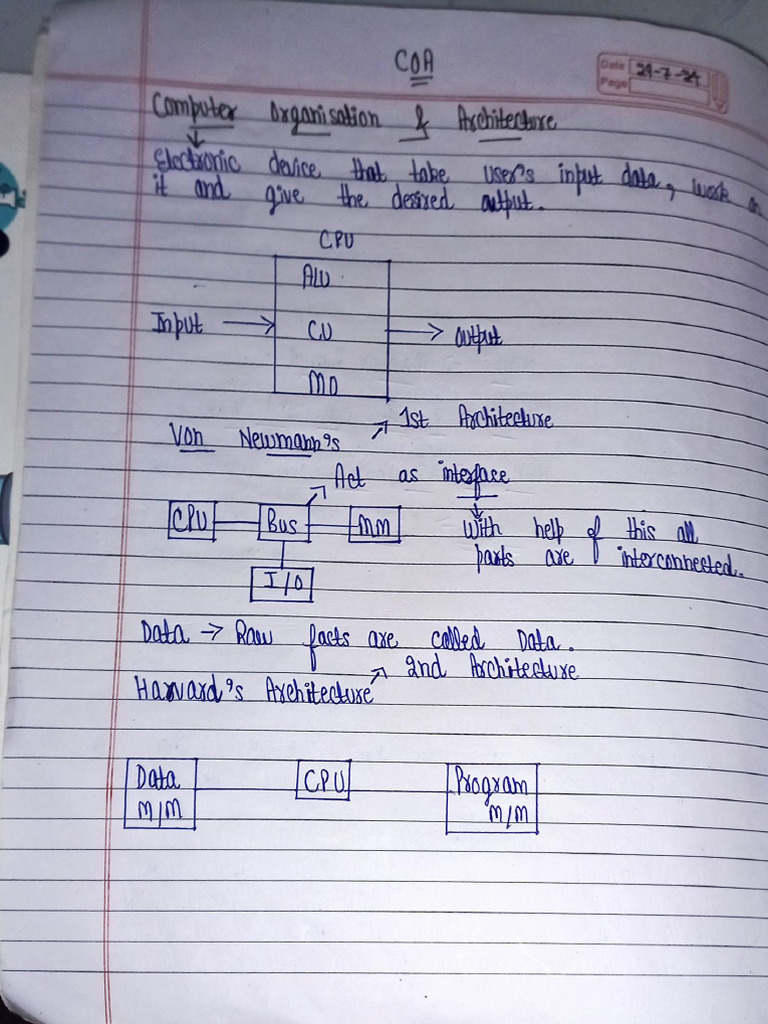 COA
Date 29-7-24
Page
Computer Organisation & Architecture
Electronic device that take user's input data, work on
it and give the desired output.
CPU
ALU
Input CU output
MU
Von Newmann's 1st Architecture
Act as interface
CPU Bus MM With help of this all
parts are interconnected.
I/O
Data → Raw facts are called Data.
2nd Architecture
Harvard's Architecture
Data CPU Program
M/M M/M